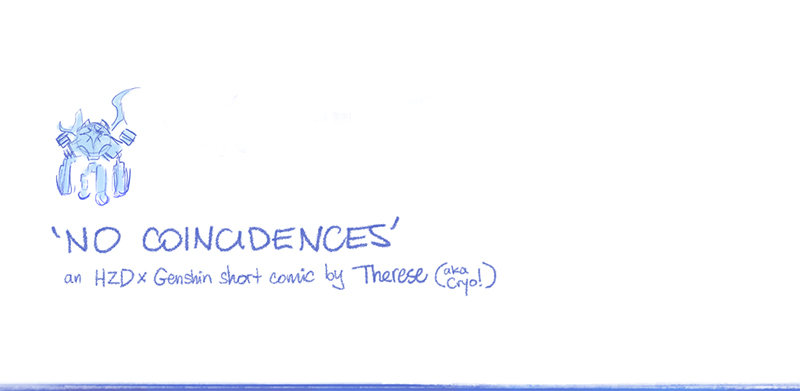 'NO COINCIDENCES'
an HZD x Genshin short comic by Therese (aka Cryo!)